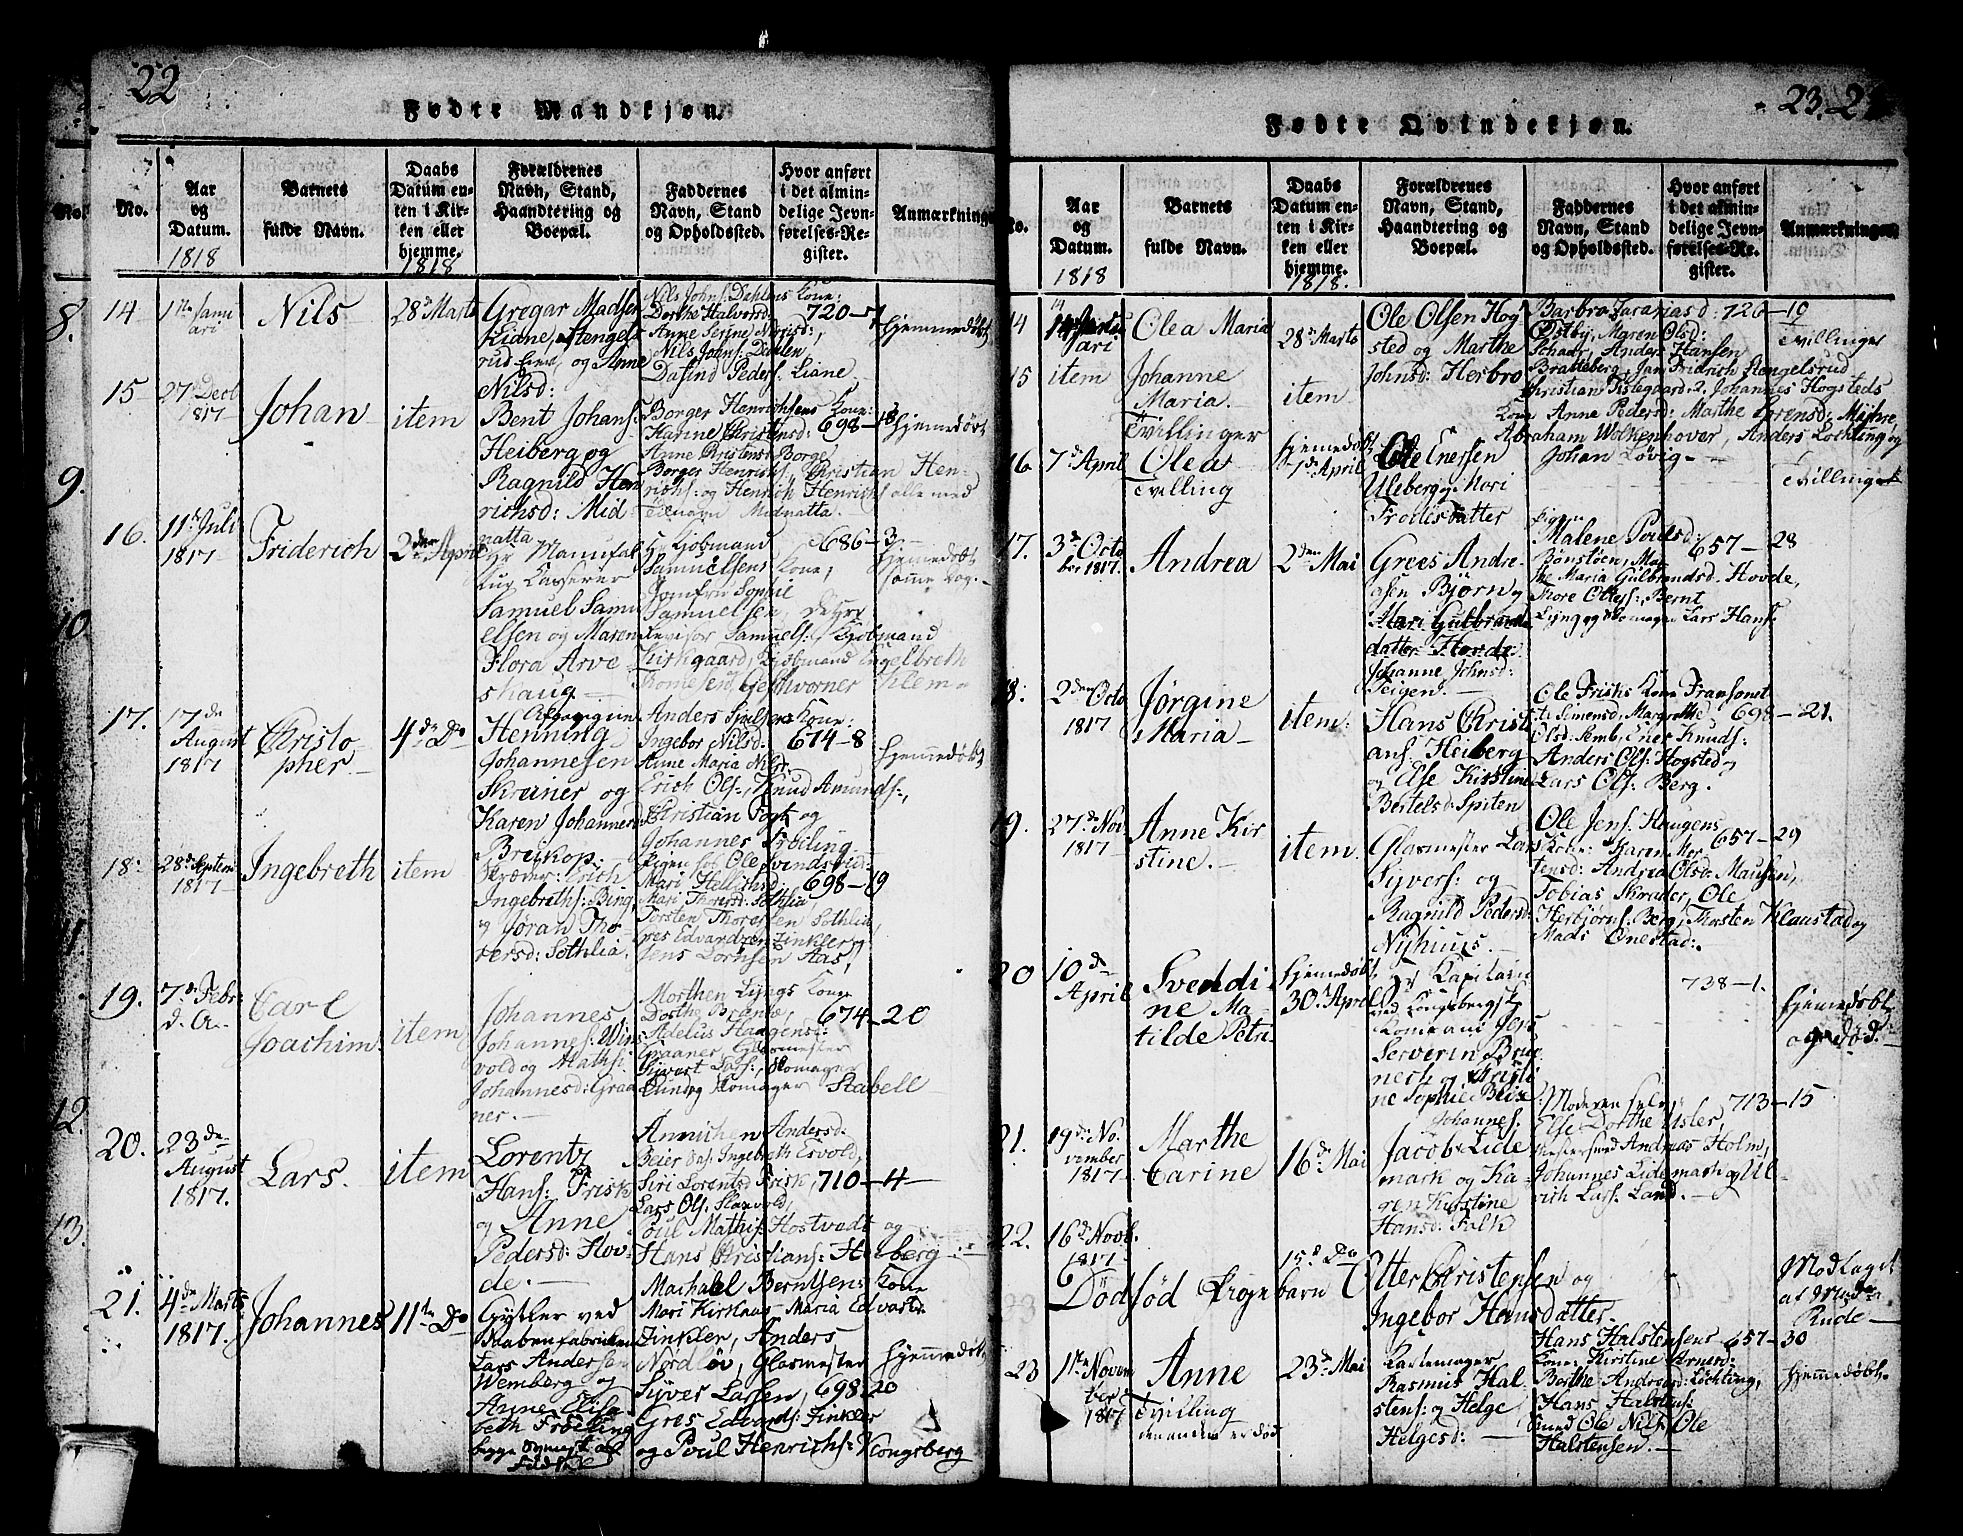 22
Fødte Mandkjøn.
No.
Aar og Datum. 1818
Barnets fulde Navn.
Daabs Datum enten i Kirken eller hjemme. 1818
Forældrenes Navn, Stand, Haandtering og Boepæl.
Faddernes Navn, Stand og Opholdssted.
Hvor anført i det almindelige Jevnførelses-Register.
Anmærkninger
14
1ste Janu
ari
Nils
28de Marts
Gregar Madsen
Liane, Stengels
rud Eier, og Anne
Nilsd:
Nils Johns: Dehlens Kone:
Dorthe Halvorsd:
Anne Serine Nirisd:,
Nils Johns: Dehlen
Dafind Peders: Liane
720-7
hjemmedøbt
15
27de Decb
1817
Johan
item
Bent Johans:
Heiberg og
Ragnild Hen
richsd: Mid
natta
Borger Henrichsens Kone:
Karine Christensd:
Anne Christens: Borge,
Borger Henrichs, Christian Hen
richs: og Henrich Henrichs alle med
Tilnavn Midnatta.
698-18
hjemmedøbt
16.
11te Juli
1817
Friderich
2den April
Hr Manufak
tur Casserer
Samuel Samu
elsen og Maren
Flora Arve
shaug
H Kjøbmand
Samuelsens Kone,
Jomfru Sophie
Samuelsen, de Hrr
Revisor Samuels: Kjøbmand
Kirkgaard, Kjøbmand Engelbreth
Thomesen, Geschvorner Klem
686-3
hjemmedøbt
17.
17de
August
1817
Christo
pher
4de Do
Afgangne
Henning
Johannesen
Skreiner og
Karen Johannesd
Breikop:
Anders Sjølsens Kone:
Ingebor Nilsd.
Anne Maria Nilsr
Erich Ols:, Knud Amunds:,
Christian Fogt og
Johannes Frøiling
674-8
hjemmedøbt
18:
28de Septem
1817
Ingebreth
item
Kræmer Erich
Ingebreths: Bing,
og Jøran Tho
rersd: Sothlia
Mari Hellichsd:
Mari Thorersd: Sothlia
Torsten Thoresen Sothlia,
Gres Edvardsen Zinkler og
Jens Lornsen Aas,
698-19
19.
7de Febr:
d. A.
Carl
Joachim
item
Johannes
Johannes: Wins
vold og Maths:
Johannesd: Graa
ner.
Morthen Lyngs Kone
Dorthe Brænne,
Adelus Haagens:
Graaner, Glasmester
Syvert Lars:, Skomager
Elling Skomager Stabell
674-20
20.
23de
August
1817.
Lars.
item
Lorentz
Hans: Frisk
og Anne
Pedersd: Hov
de.
Annichen Andersd:
Beier das: Ingebreth Esvold,
Siri Lorentsd Frisk,
Lars Ols: Skauvold,
Poul Mathis: Hostvedt og
Hans Christians: Heiberg
710-4
21.
4de Marts
1817.
Johannes
11te Do
Gytler ved
Vaabenfabriken
Lars Andersen
Wemberg og
Anne Elisa
beth Frøiling
Machael Berntsens Kone
Mari Kirkaas Maria Edvartz
Zinkler, Anders
Nordløv, Glasmester
Syver Larsen,
Gres Edvards: Zinkler
og Poul Henrichs: Kongsberg
698.20
hjemmedøbt
23.
Fødte Qvindekjøn.
No.
Aar og Datum. 1818
Barnets fulde Navn.
Daabs Datum enten i Kirken eller hjemme. 1818.
Forældrenes Navn, Stand, Haandtering og Boepæl.
Faddernes Navn, Stand og Opholdssted.
Hvor anført i det almindelige Jevnførelses-Register.
Anmærkninger
14
14
ari
Olea Maria
28de Marts
Ole Olsen Hog
sted og Marthe
Johnsd: Herbro
Barbro Zarariasd:
Ostby, Maren Olsd:
Schaar, Anders Hansen
Bratteberg, Jan Fridrich Stengelsrud
Christian Tislegaard: 2. Johannes Hogsteds
Kone Anne Pedersd: Marthe Sørensd: Myhre,
Abraham Wolkenhover, Anders Løchling og
Johan Løvig
726-19
Tvillinger
15
item
Johanne
Maria.
Tvillinger
item
16
7de April
Olea
Tvilling
hjemmedøbt
7de April
Ole Enersen
Uleberg og Mari
Frodesdatter
Tvillinger
17.
3de Octo
ber 1817.
Andrea
2den Mai
Grees Andre
asen Bjørn og
Mari Gulbrands
datter Hovde:
Pigen
Malene Poulsd:
Bønstøen, Ma
the Maria Gulbrandsd. Hovde,
Thore Olless:, Bernt
Lyng og Skomager Lars Hans:
657-28
18.
2den Octo
1817
Jørgine
Maria
item:
Johanne Johnsd:
Teigen
Hans Christ
ians: Heiberg
og Else Kirstine
Bertelsd: Spiten
Ole Frisks Kone Fransonet
te Simensd, Margrethe
Olsd: Amb, Ener Knuds:
Anders Ols: Hogsted og
Lars Ols: Berg.
698-21.
19.
27de Nov.
1817
Anne Kir
stine.
item
Glasmester Lars
Syvers: og
Ragnild Pedersd:
Nyhuus.
Ole Jens: Haugens
Kone: Karen Mor
tensd: Andrea Olsd: Mausen,
Tobias Skrader, Ole
Herbjørns: Berg, Thorsten Klaustad og
Mads Onestad:
657-29
20
10de
April
Svendi
ne Ma
tilde Petri
hjemmedøbt
30. April
Hr Kapitain
ved Kongsbergske
Kompani Jens
Serverin Brug
nesh og Kristi
ne Sophie Blix
738-1.
hjemmedøbt
og død.
21.
19de No
vember
1817
Marthe
Carine
16de Mai
Johannes:
Jacob Lide
mark og Ka
ren Kirstine
Hansd: Falk
Moderen selv,
Else Dorthe Usler,
Mestersvend Andreas Holm,
Johannes Lidemark og Ul
rich Lars: Land.
713-15
22.
16de Novb.
1817
Dödfød Pigebarn
15de Do
Otter Christensen og
Ingebor Hansdatter
Modtaget
af Mad
Rude
23
1ste Novem
ber
1817
Anne
Tvilling
den anden er død
23de Mai
Kartemager
Rasmus Hal
stens: og Helge
Helgesd:
Hans Halstensens
Kone: Kirstine Arnesd:
Berthe Andreasd: Løchting,
Hans Halstens:
Smed Ole Nils: Ole
Halstensen.
657-30
hjemmedøbt.